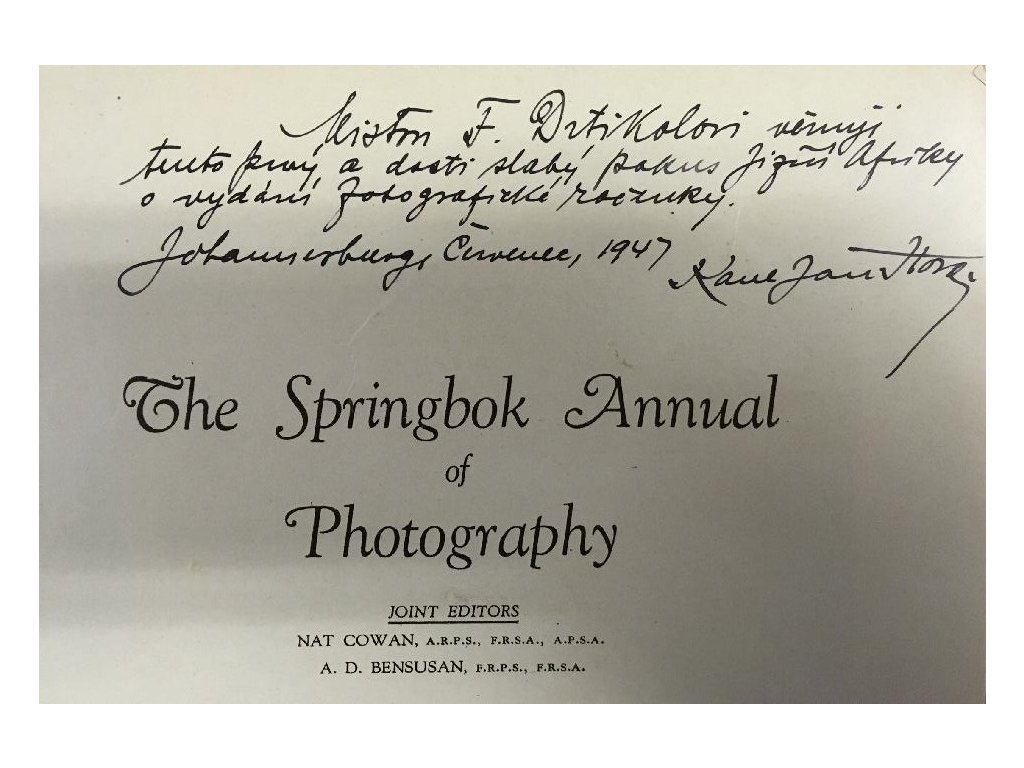 Mistru F. Drtikolovi věnuji
tento prvý a dosti slabý pokus Jižní Afriky
o vydání fotografické ročenky.
Johannesburg, Červenec, 1947
Jan
The Springbok Annual
of
Photography
JOINT EDITORS
NAT COWAN, A.R.P.S., F.R.S.A., A.P.S.A.
A. D. BENSUSAN, F.R.P.S., F.R.S.A.